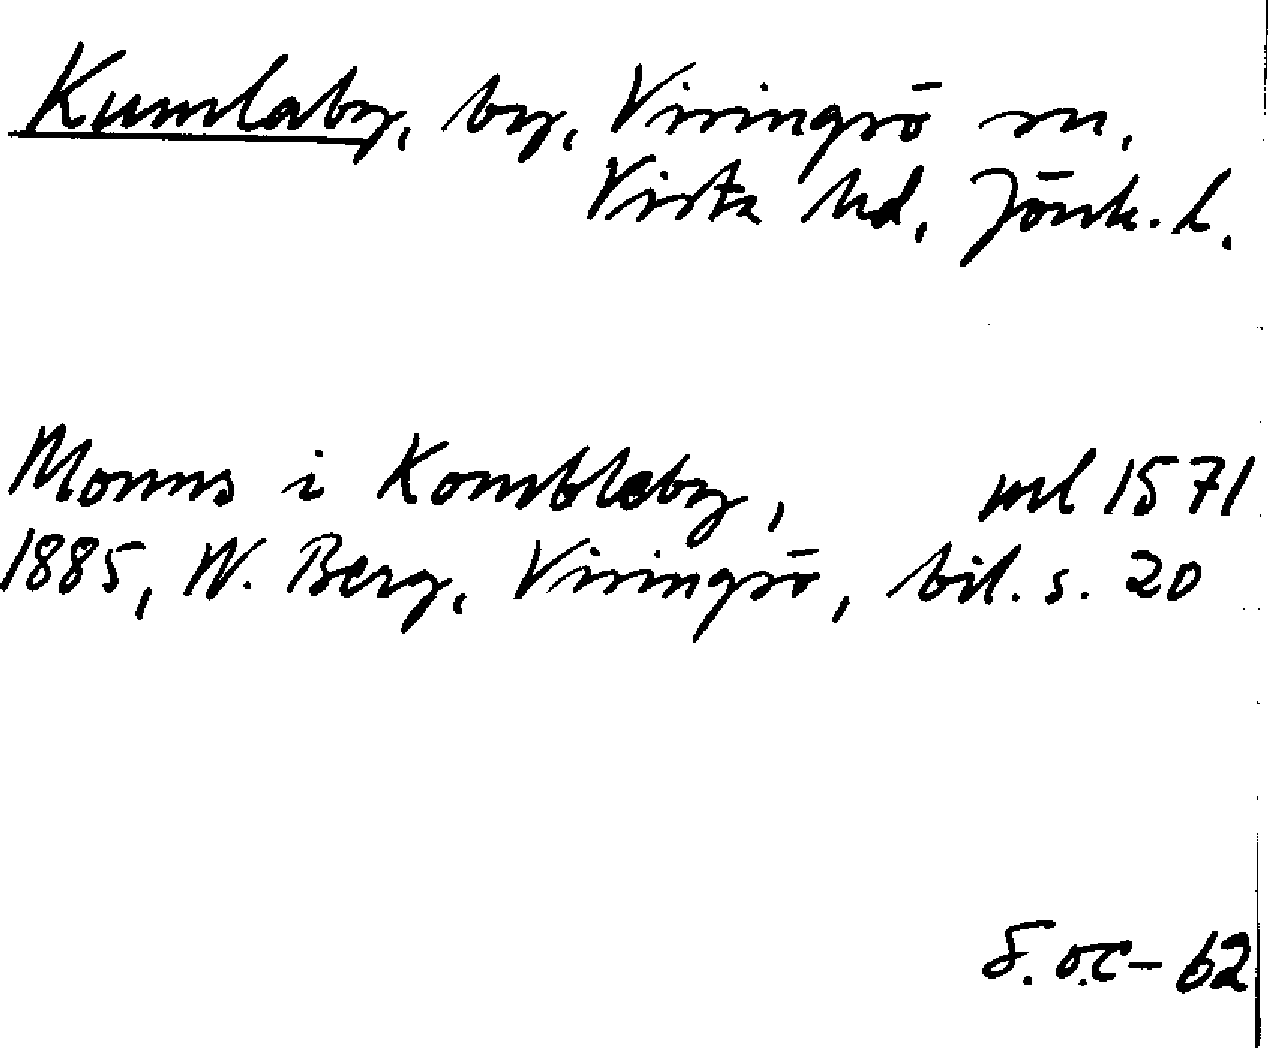 Kumlaby, by, Visingsö sn,
Vista hd, Jönk. l.
Monns i Kombleby, ml 1571
1885, W. Berg, Visingsö, bil. s. 20
S. o. C-62